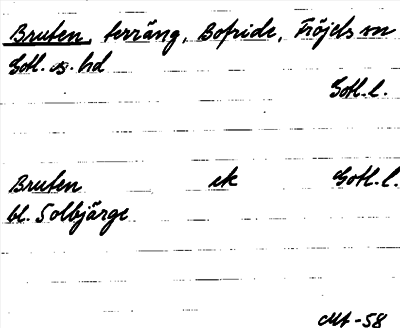 Bruten, terräng, Bofride, Fröjels sn
Gotl. s. hd
Gotl. l.
Bruten ek Gotl. l.
bl. Solbjärge
-58